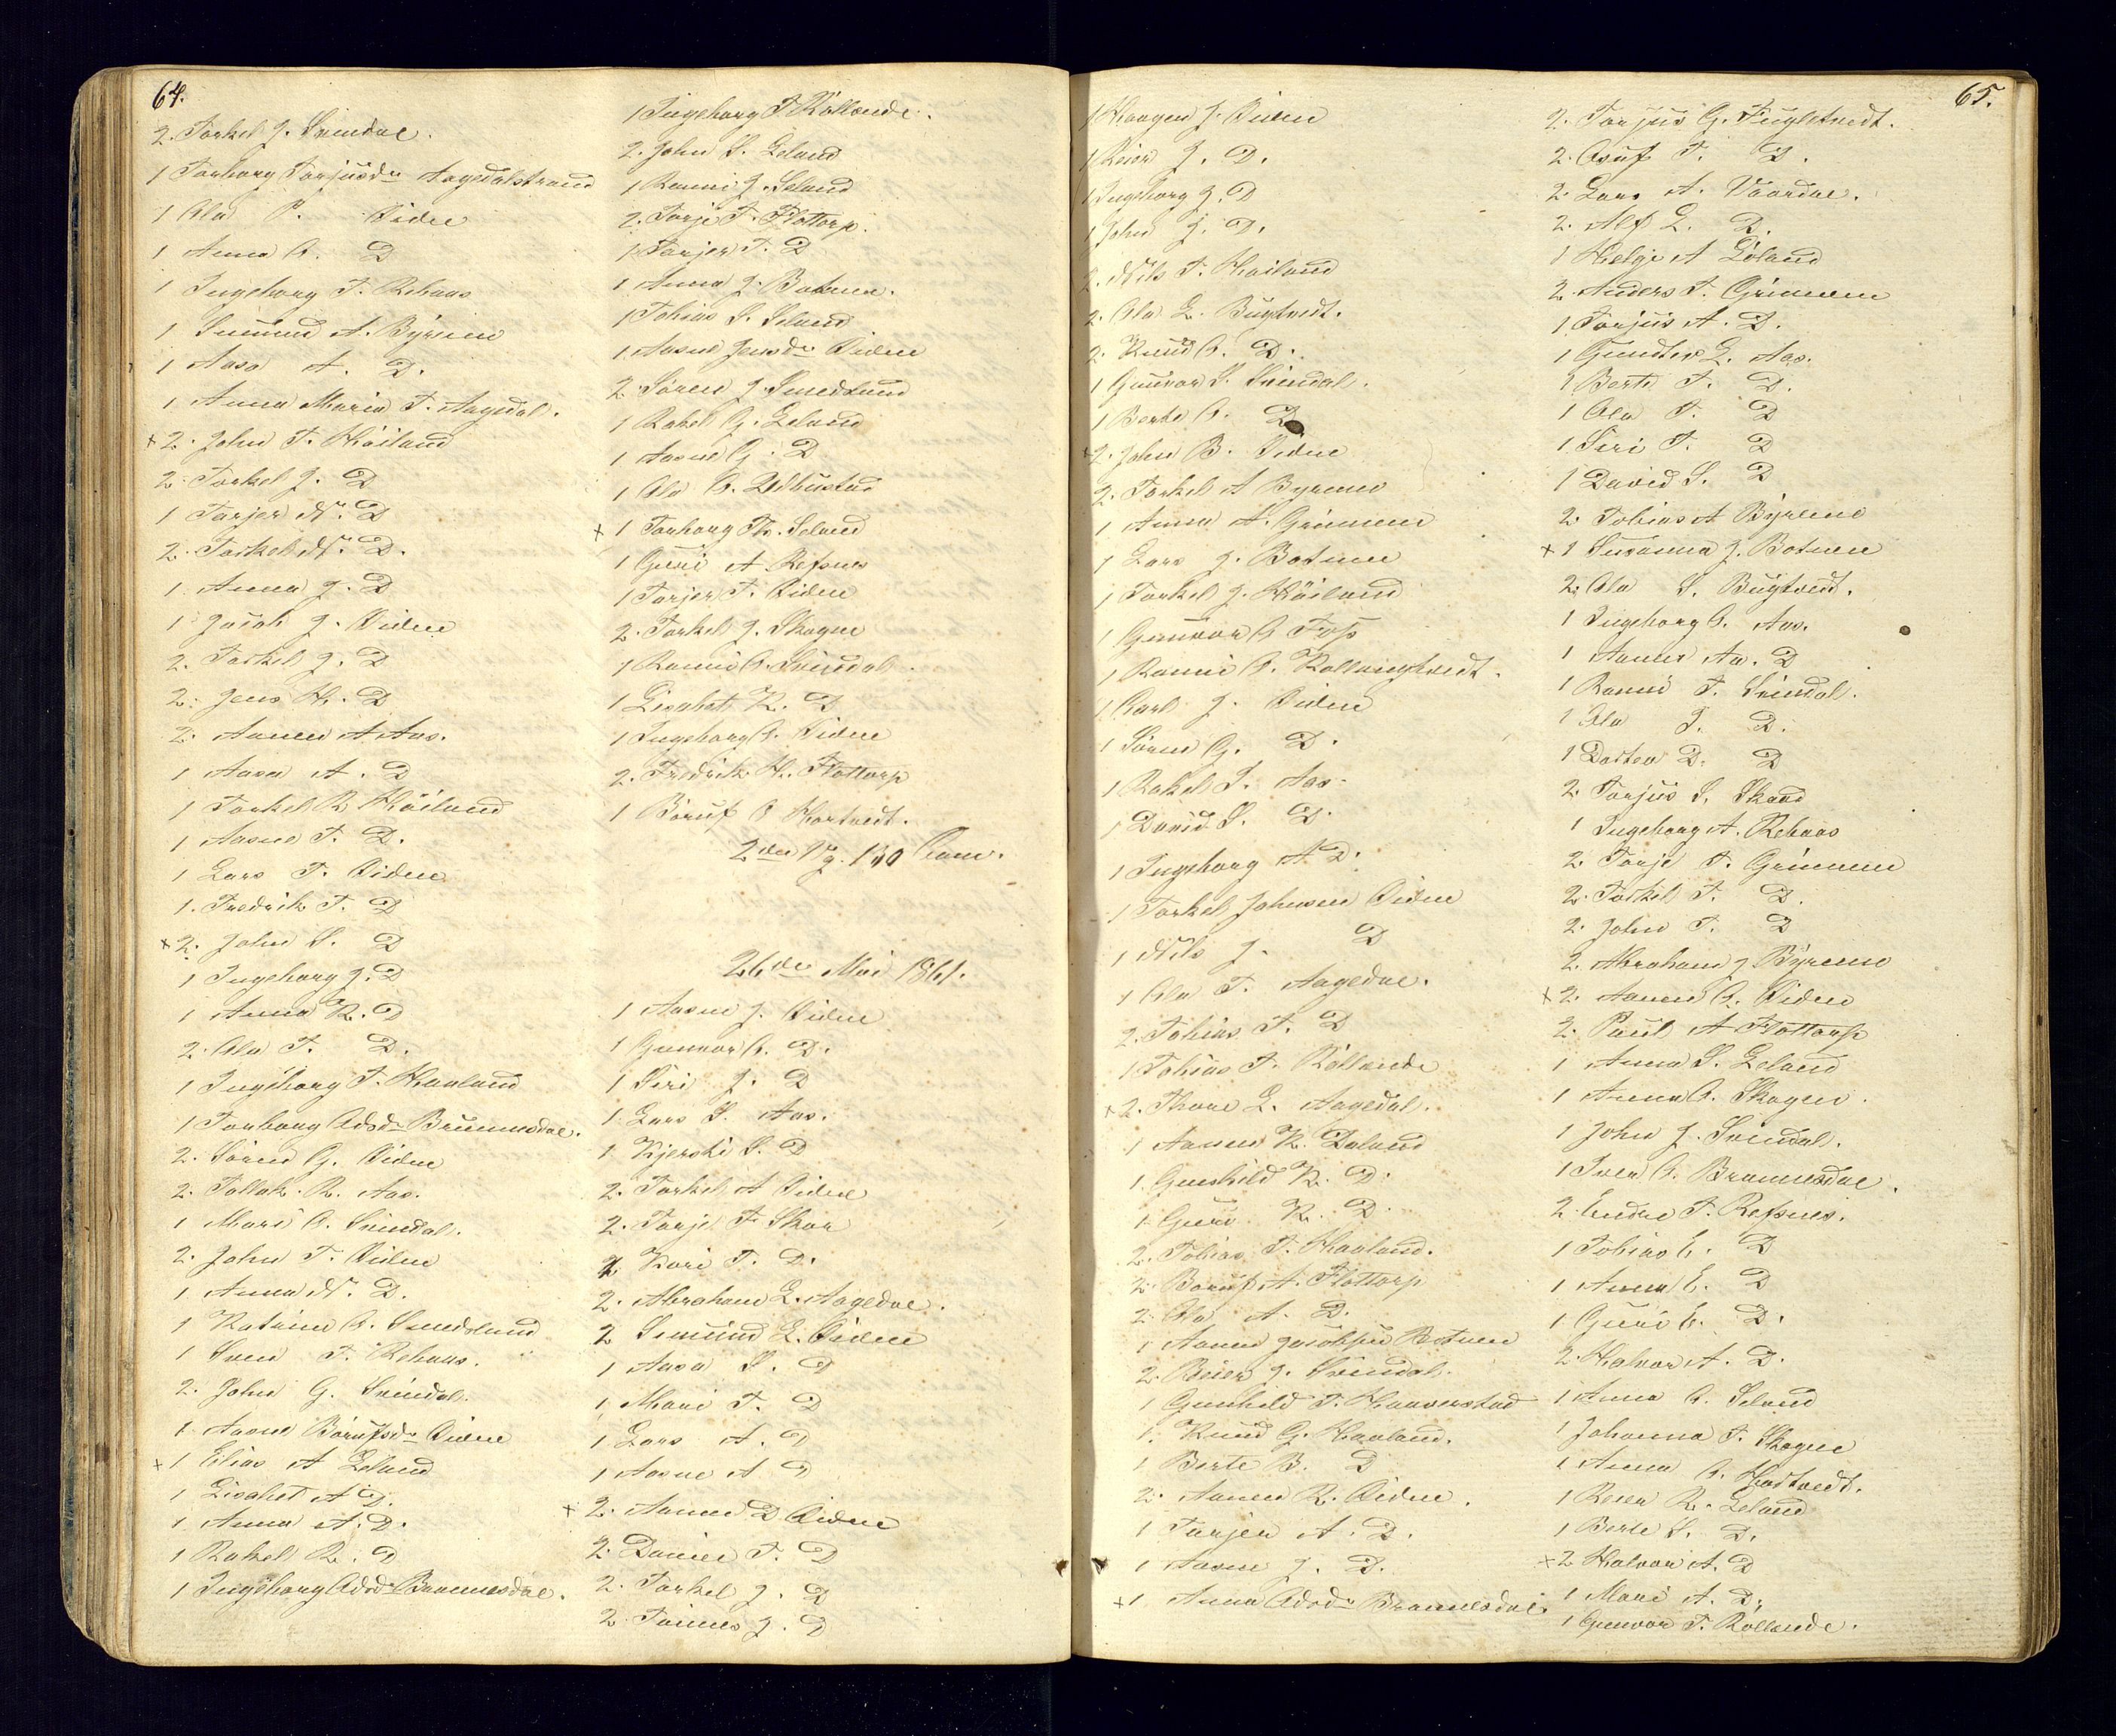 64.
2. Torkel J. Svindal.
1 Torborg Torjusdr Aagedalstrand
1 Ola P. Eidne
1 Anna O. D
1 Ingeborg T. Rehaas
1 Simund A. Byremo
1 Aasa A. D.
1 Anna Maria T. Aagedal.
x 2. John T. Höiland
2. Torkel J. D
1 Torjer N. D
2. Torkel N. D.
1. Anna J. D
1 Jacob J. Eidne
2. Torkel J. D
2. Jens H. D
2. Aanen A Aas.
1 Aasa A. D
1 Torkel R Höiland
1 Aasne T. D.
1 Lars T. Eidne
1. Fredrik T. D
x 2. John S. D
1 Ingeborg J. D
1 Anna K. D
2. Ola T. D.
1 Ingeborg T. Haaland
1 Torborg Adsdr Brunnesdal.
2. Sören G. Eidne
2. Tollak R. Aas.
1 Mari O. Svindal.
2. John T. Eidne
1 Anna N. D.
1 Katrine O. Smedsland
1 Sven T. Rehaas.
2. John G. Svindal.
1 Aasne Börufsdr Eidne
x 1 Elias A Leland
1 Lisabet A D.
1 Anna A. D.
1 Rakel R. D
1 Ingeborg Adsdr Brannesdal.
1 Ingeborg T Röllende.
2. John S. Leland
1 Ranni J. Seland
2. Torje T. Flottorp.
1 Torjer T. D
1 Anna J. Botnen.
1 Tobias S. Seland
1 Aasne Jensdr Eidne
2. Sören J. Smedsland
1 Rakel G. Leland
1 Aasne G. D
1 Ola O. Ubbustad
x 1 Torborg Th. Seland
1 Guri A. Refsnes
1 Torjer T. Eidne
2. Torkel J. Skogen
1 Ranni O. Svindal.
1 Lisabet K. D
1 Ingeborg O. Eidne
2. Fredrik H. Flottorp
1 Böruf O Hortvedt.
2den Vg. 130 Com.
26de Mai 1861.
1 Aasne J. Eidne
1 Gunvor O. D.
1 Siri J. D
1. Lars S. Aas.
1 Kjersti S. D
2. Torkel A Eidne
2. Torje T. Skar
1 Kari T. D.
2. Abraham L. Aagedal.
2 Simund L. Eidne
1 Aasa S. D
1 Mari T. D
1 Lars A. D
1 Aasne A D
x 2. Aanen D Eidne
2. Daniel T. D
2. Torkel J. D
2. Tönnes J. D
65.
1 Haagen J. Eidne
1 Reier J. D.
1 Ingeborg J. D
1 John J. D.
2. Nils T. Höiland
2. Ola L. Bugtvedt.
2. Knud O. D.
1 Gunvor S. Svindal.
1 Berte O. D
x 2. John B. Eidne
2. Torkel A Byremo
1 Anna A. Grimmen
1 Lars J. Botnen
1 Torkel J. Höiland
1 Gunvor O Foss
1 Ranni O. Kollungtvedt.
1 Carl J. Eidne
1 Sören G. D.
1 Rakel T. Aas.
1 David S. D.
1 Ingeborg A D.
1 Torkel Johnsen Eidne
1 Nils J. D
1 Ola T. Aagedal.
2. Tobias T. D
1 Tobias T. Röllende
x 2. Thore L. Aagedal.
1 Aanen K. Leland
1 Gunhild K. D.
1 Guri K. D.
2. Tobias T. Haaland.
2. Böruf A. Flottorp
2. Ola A. D.
1 Aanen Jacobsen Botnen
2. Reier J. Svindal.
1 Gunhild T. Haaverstad
1. Knud G. Haaland.
1 Berte B. D
2. Aanen R. Eidne.
1 Torjer A. D.
1 Aasne J. D.
x 1 Anna Adsdr Brannesdal.
2. Torjus G. Fugletvedt.
2. Asuf T. D.
2. Lars A. Vaardal.
2. Alf L. D.
1 Helge A Löland
2. Anders T. Grimmen
1 Torjus A. D.
1 Gunder L. Aas.
1 Berte T. D.
1 Ola T. D
1 Siri T. D
1 David S. D
2 Tobias A Byremo
x 1 Susanna J. Botnen
2. Ola S. Bugtvedt.
1 Ingeborg O. Aas.
1 Aanen Aa. D
1 Ranni T. Svindal.
1 Ola T. D.
1 Dortea D. D
2. Torjus S. Skaar
1 Ingeborg A. Rehaas
2. Torje T. Grimmen
2. Torkel T. D.
2. John T. D
2. Abraham J Byremo
x 2. Aanen O. Eidne
2. Paul A Flottorp
1 Anna S. Leland
1 Anna O. Skogen.
1 John J. Svindal.
1 Iver O. Brannesdal.
2 Endre T. Refsnes.
1 Tobias E. D
1 Anna E. D
1 Guri E. D.
2. Halvor A. D.
1 Anna O. Seland
1 Johanna T. Skogen
1 Anna O. Hortvedt.
1 Reier R. Leland
1 Berte S. D.
x 2 Halvor A. D
1 Mari A. D.
1 Gunvor T. Röllende.